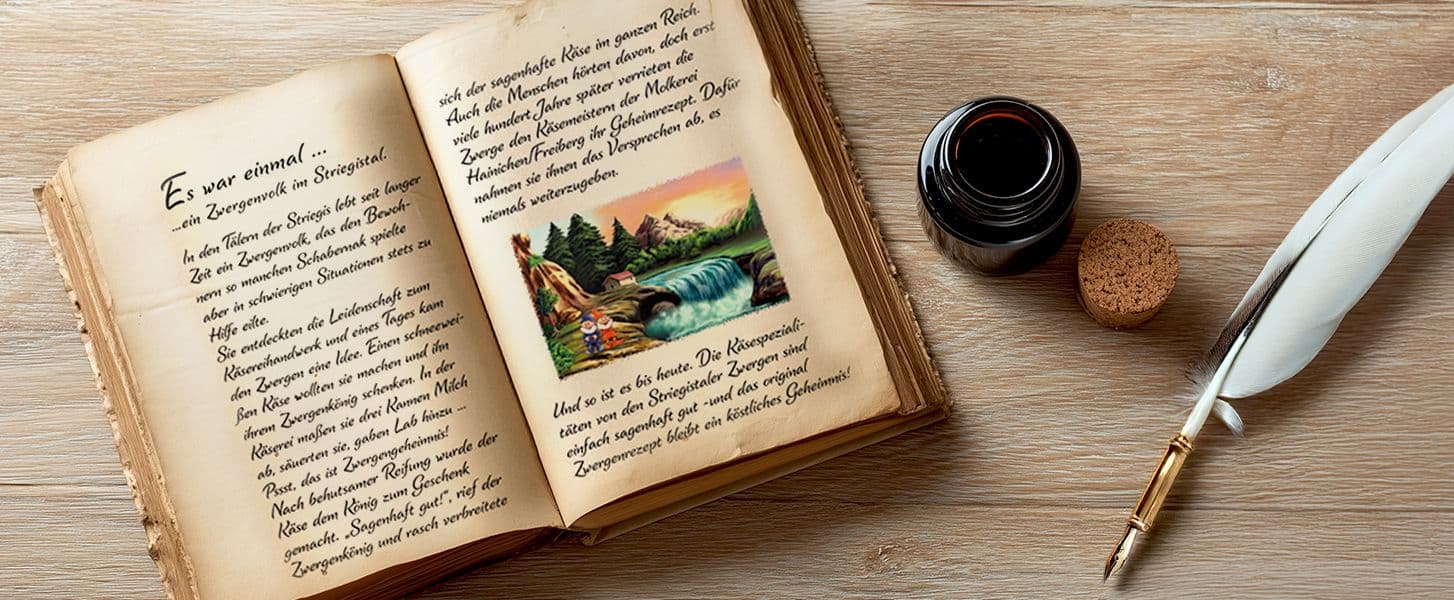 Es war einmal ...
...ein Zwergenvolk im Striegistal.
In den Tälern der Striegis lebt seit langer
Zeit ein Zwergenvolk, das den Bewoh-
nern so manchen Schabernak spielte
aber in schwierigen Situationen stets zu
Hilfe eilte.
Sie entdeckten die Leidenschaft zum
Käsereihandwerk und eines Tages kam
den Zwergen eine Idee. Einen schneewei-
ßen Käse wollten sie machen und ihn
ihrem Zwergenkönig schenken. In der
Käserei maßen sie drei Kannen Milch
ab, säuerten sie, gaben Lab hinzu ...
Pssst, das ist Zwergengeheimnis!
Nach behutsamer Reifung wurde der
Käse dem König zum Geschenk
gemacht. „Sagenhaft gut!", rief der
Zwergenkönig und rasch verbreitete
sich der sagenhafte Käse im ganzen Reich.
Auch die Menschen hörten davon, doch erst
viele hundert Jahre später verrieten die
Zwerge den Käsemeistern der Molkerei
Hainichen/Freiberg ihr Geheimrezept. Dafür
nahmen sie ihnen das Versprechen ab, es
niemals weiterzugeben.
Und so ist es bis heute. Die Käsespeziali-
täten von den Striegistaler Zwergen sind
einfach sagenhaft gut -und das original
Zwergenrezept bleibt ein köstliches Geheimnis!